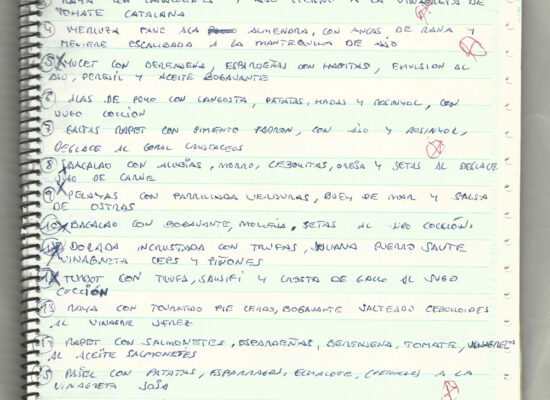 RAYA CON                                A LA VINAGRETA DE
TOMATE CATALANA
4 MERLUZA PANE A LA ALMENDRA, CON ANCAS DE RANA Y
MEUNIERE ESCALIBADA A LA MANTEQUILLA DE AJO
5 X SUQUET CON BERENJENA, ESPARDEÑAS CON HABITAS, EMULSION AL
AJO, PEREJIL Y ACEITE BOGAVANTE
6 ALAS DE POLLO CON LANGOSTA, PATATAS, Y ROSINYOL, CON
JUGO COCCIÓN
7 GALTAS RAPET CON PIMIENTO PADRON, CON AJO Y ROSINYOL,
DEGLACE AL CORAL CRUSTACEOS
8 X BACALAO CON ALUBIAS, MORRO, CEBOLLITAS, OREJA Y SETAS AL DEGLACE
JUGO DE CARNE
9 X PELAYAS CON PARRILLADA VERDURAS, BUEY DE MAR Y SALSA
DE OSTRAS
10 X BACALAO CON BOGAVANTE, MOLLEJA, SETAS AL JUGO COCCIÓN.
11 X DORADA INCRUSTADA CON TRUFAS, JULIANA PUERRO SAUTE
VINAGRETA CEPS Y PIÑONES
12 X TURBOT CON TRUFA, SALSIFI Y CRESTA DE GALLO AL JUGO
COCCIÓN
13 RAYA CON TOURNEDO PIE CERDO, BOGAVANTE SALTEADO CEBOLLOIDES
AL VINAGRE JEREZ
14 RAPET CON SALMONETES, ESPARDEÑAS, BERENJENA, TOMATE, VINAGRETA
AL ACEITE SALMONETES
15 PAGEL CON PATATAS, ESPARRAGOS, ECHALOTE, A LA
VINAGRETA SOJA